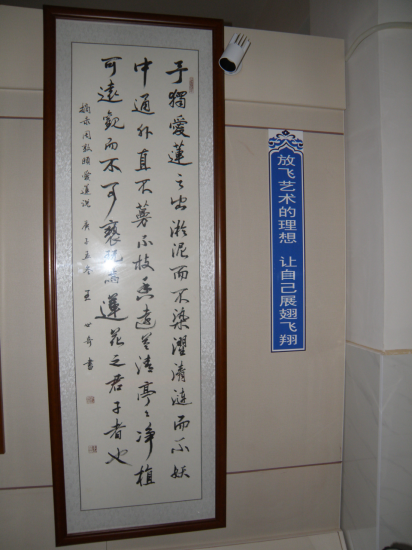 予獨愛蓮之出淤泥而不染濯清漣而不妖
中通外直不蔓不枝香遠益清亭々净植
可遠觀而不可褻玩焉蓮花之君子者也
摘录周敦頤愛蓮説 王 書
放飞艺术的理想 让自己展翅飞翔